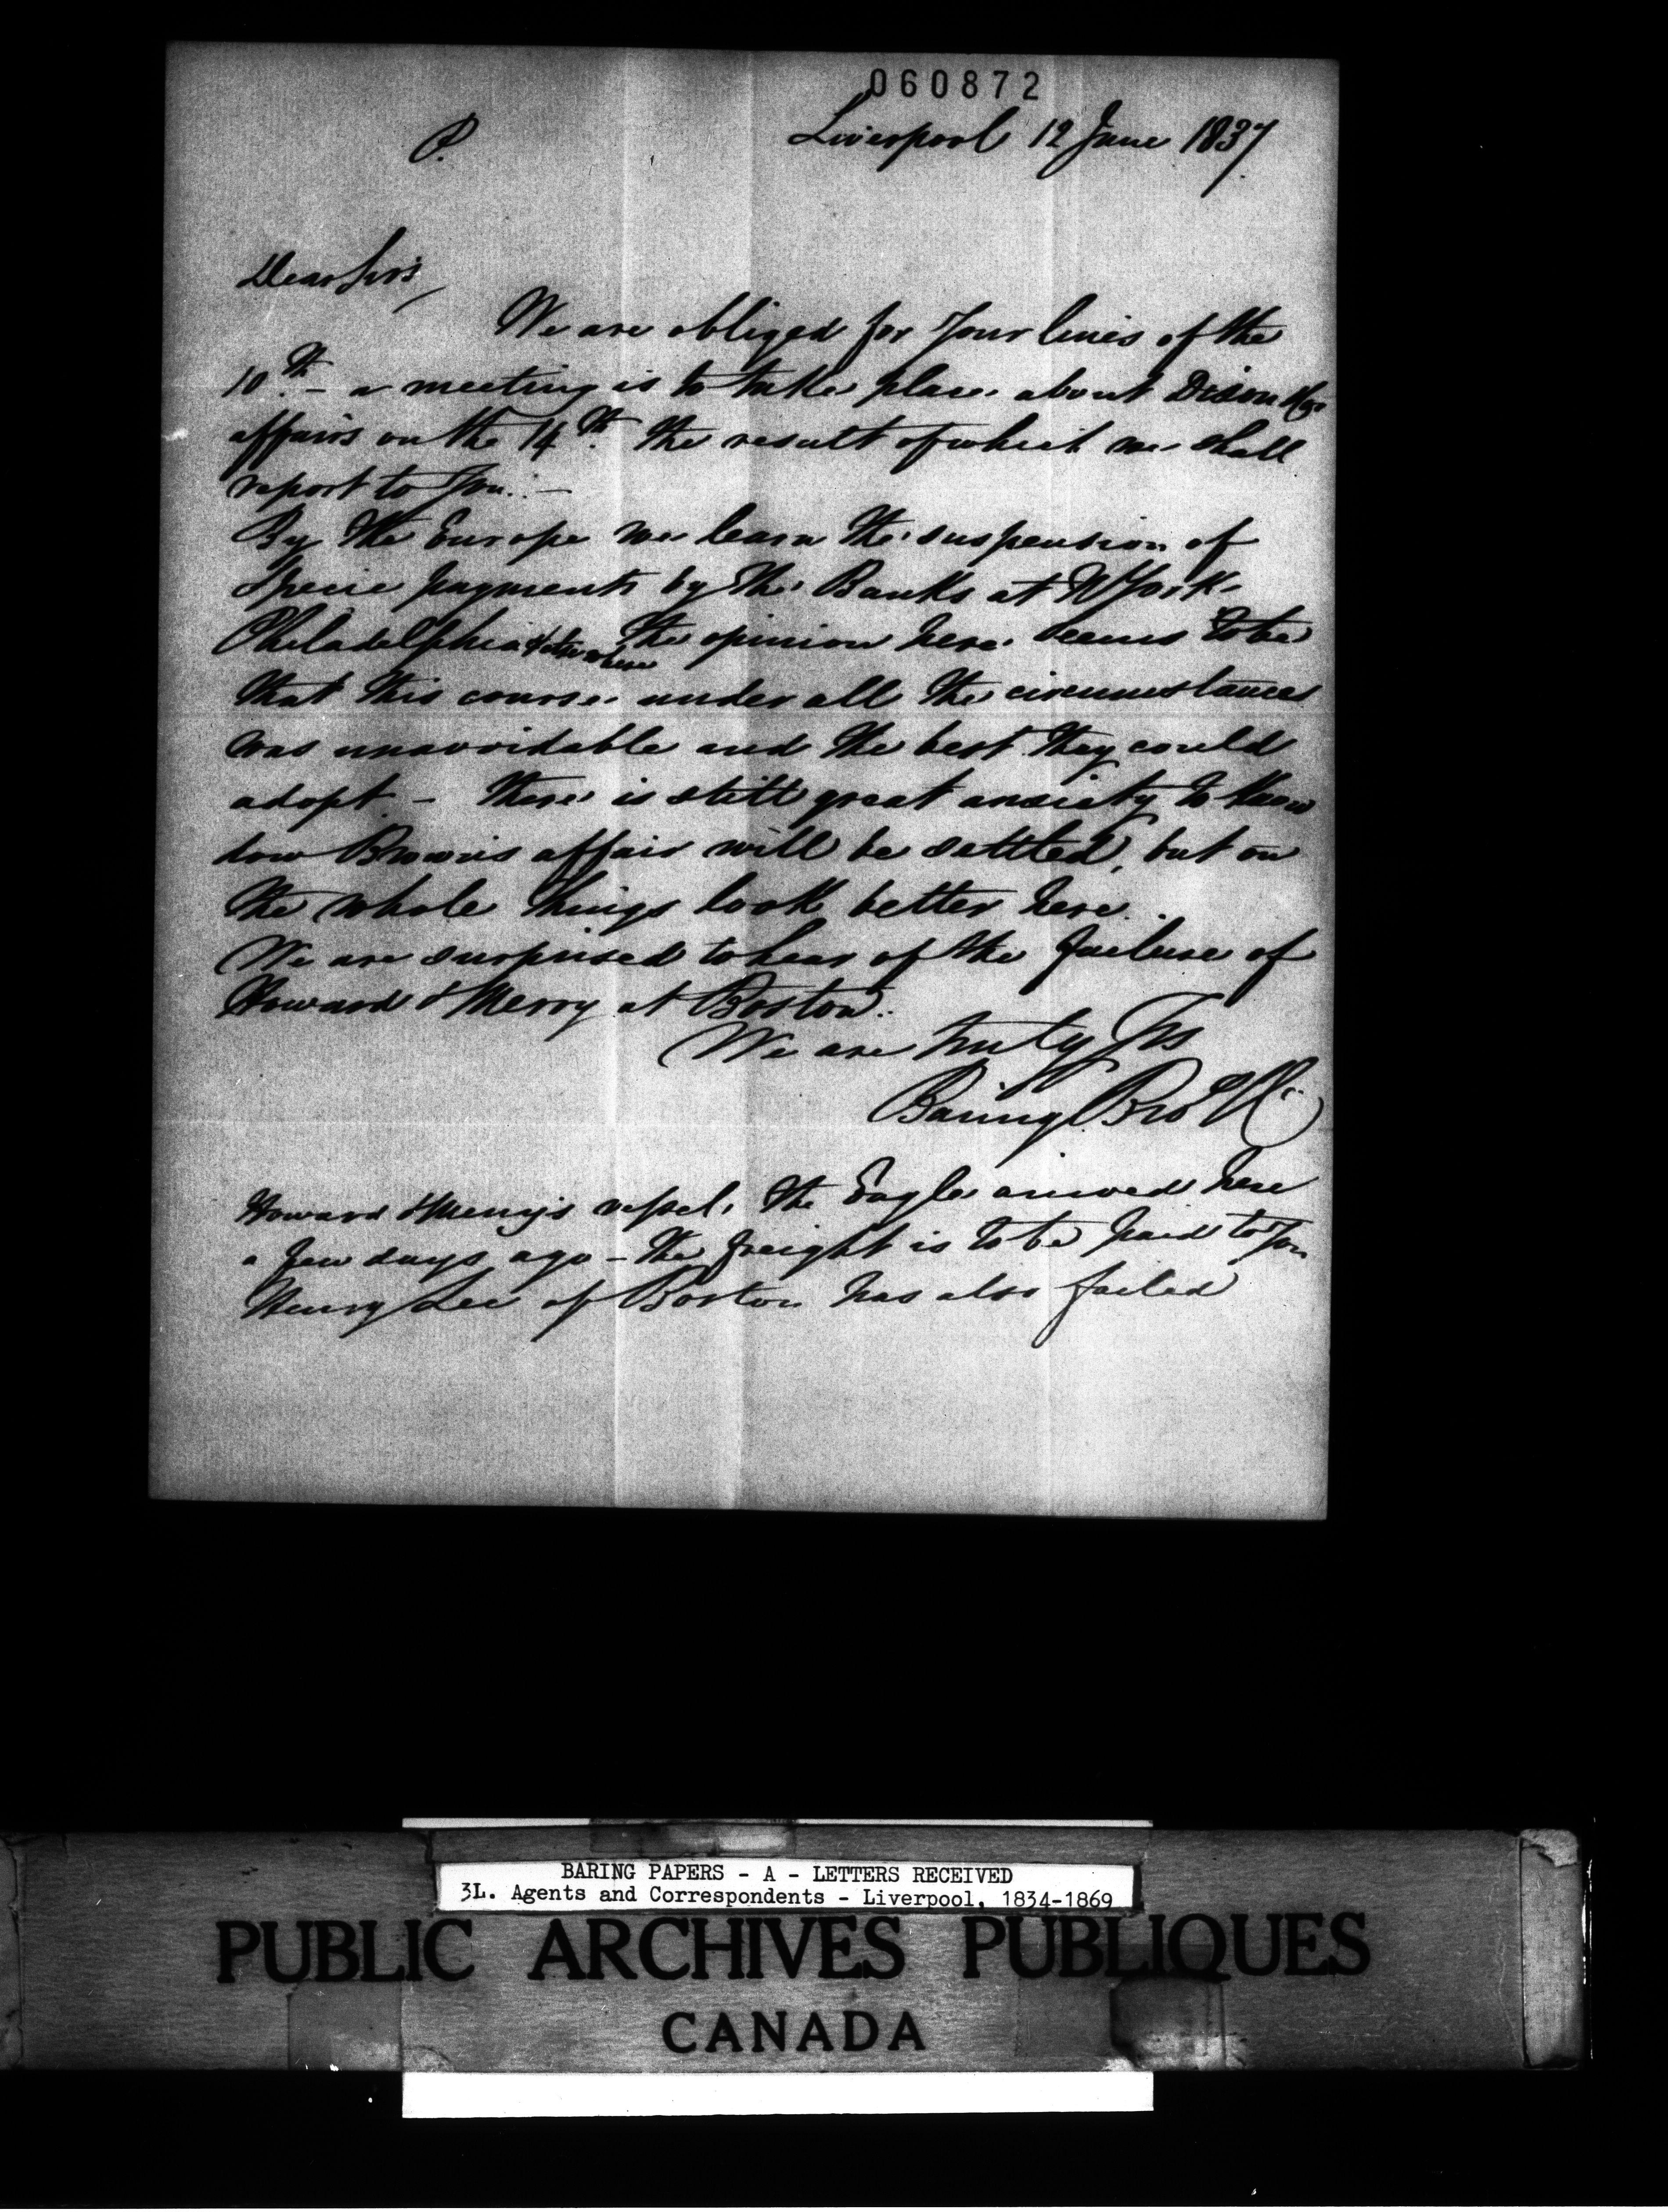 060872
P. Liverpool 12 June 1837
Dear Sirs,
We are obliged for your lines of the
10th - a meeting is to take place about Dixon &Co
affairs on the 14th. the result of which we shall
report to you. -
By the Europe we learn the suspension of
Specie payments by the Banks at NYork
Philadelphia & elsewhere the opinion here seems to be
that this course under all the circumstances
was unavoidable and the best they could
adopt - there is still great anxiety to know
how Browns affair will be settled, but on
the whole things look better here.
We are surprised to hear of the failure of
Howard & Merry at Boston.
We are truly Yrs
Baring Bro & Co
Howard & Merry's vessel, the Eagle arrived here
a few days ago - the freight is to be paid to you
Henry Lee of Boston has also failed
BARING PAPERS - A - LETTERS RECEIVED
3L. Agents and Correspondents - Liverpool, 1834-1869
PUBLIC ARCHIVES PUBLIQUES
CANADA